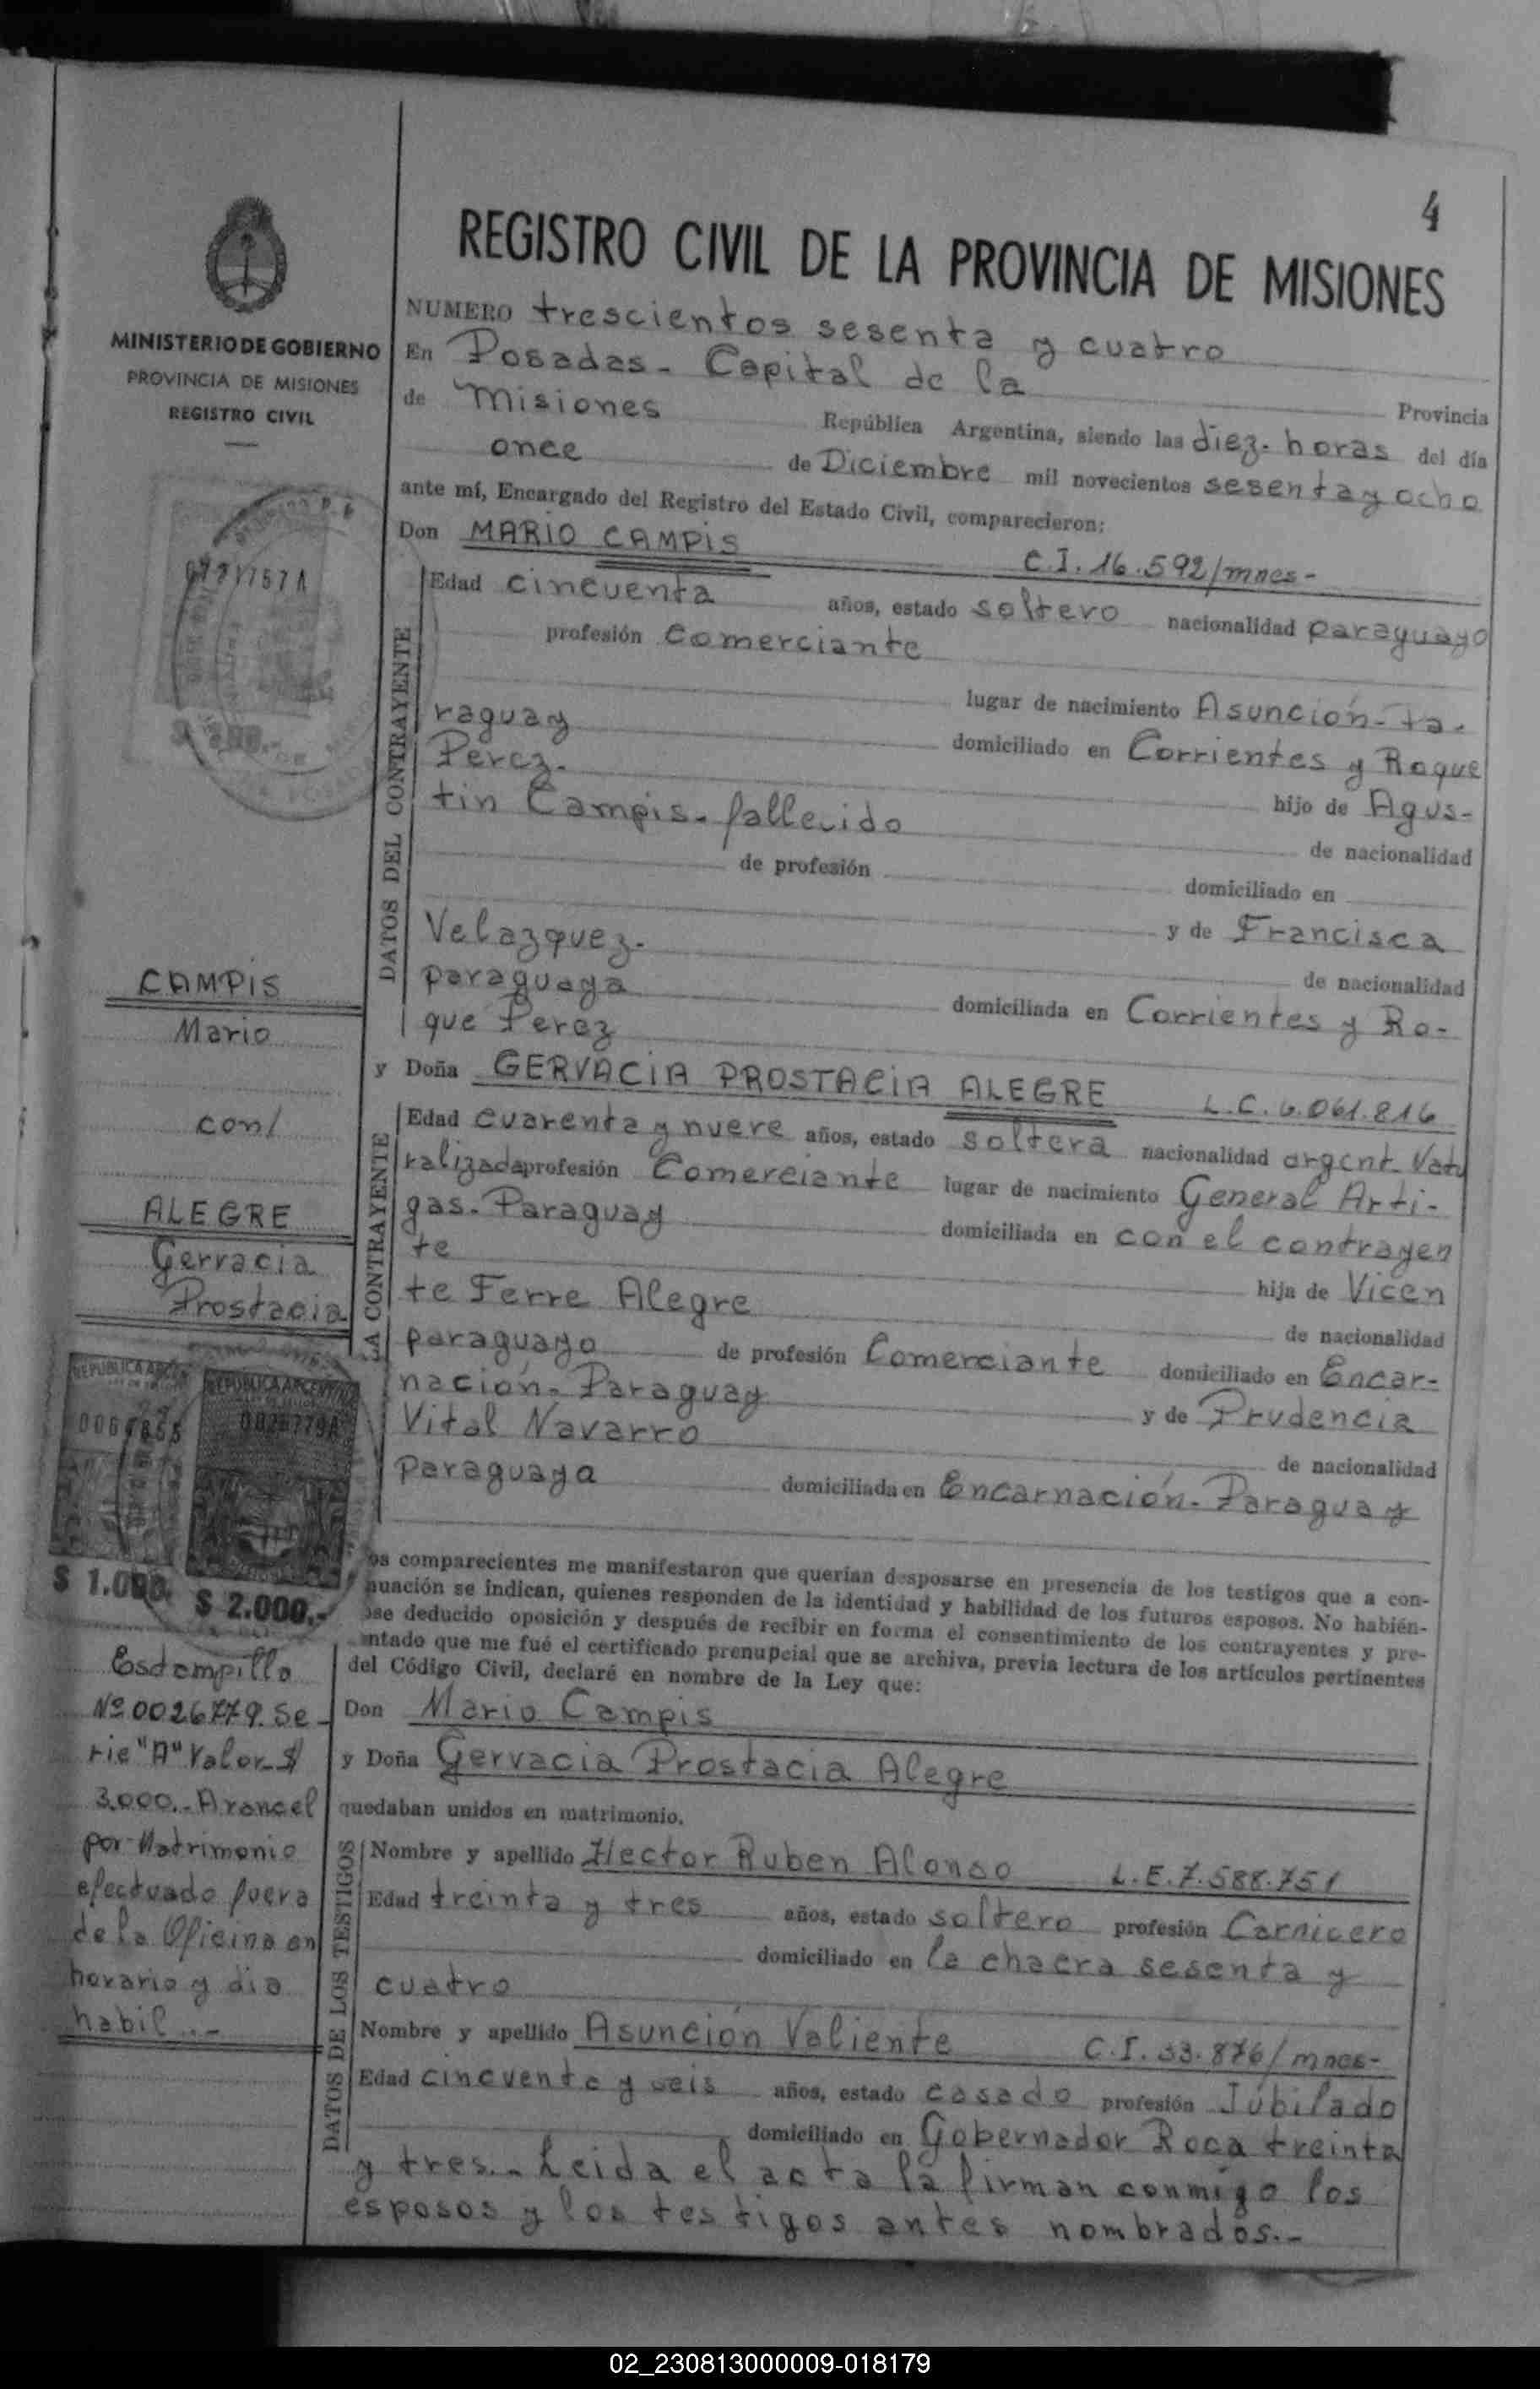 4
REGISTRO CIVIL DE LA PROVINCIA DE MISIONES
MINISTERIO DE GOBIERNO
PROVINCIA DE MISIONES
REGISTRO CIVIL
NUMERO trescientos sesenta y cuatro
En Posadas - Capital de la Provincia
de Misiones República Argentina, siendo las diez. horas del día
once de Diciembre mil novecientos sesenta y ocho
ante mí, Encargado del Registro del Estado Civil, comparecieron:
Don MARIO CAMPIS C.I. 16.592/mnes-
DATOS DEL CONTRAYENTE
Edad cincuenta años, estado soltero nacionalidad paraguayo
profesión Comerciante
lugar de nacimiento Asunción - Pa-
raguay domiciliado en Corrientes y Roque
Perez. hijo de Agus-
tin Campis. fallecido de nacionalidad
de profesión domiciliado en
y de Francisca
Velazquez. de nacionalidad
paraguaya domiciliada en Corrientes y Ro-
que Perez
y Doña GERVACIA PROSTACIA ALEGRE L.C. 6.061.816
LA CONTRAYENTE
Edad cuarenta y nueve años, estado soltera nacionalidad argent. Natu
ralizada profesión Comerciante lugar de nacimiento General Arti-
gas. Paraguay domiciliada en con el contrayen
te hija de Vicen
te Ferre Alegre de nacionalidad
paraguayo de profesión Comerciante domiciliado en Encar-
nación. Paraguay y de Prudencia
Vital Navarro de nacionalidad
paraguaya domiciliada en Encarnación. Paraguay
os comparecientes me manifestaron que querían desposarse en presencia de los testigos que a con-
nuación se indican, quienes responden de la identidad y habilidad de los futuros esposos. No habién-
ose deducido oposición y después de recibir en forma el consentimiento de los contrayentes y pre-
ntado que me fué el certificado prenupcial que se archiva, previa lectura de los artículos pertinentes
del Código Civil, declaré en nombre de la Ley que:
Don Mario Campis
y Doña Gervacia Prostacia Alegre
quedaban unidos en matrimonio.
DATOS DE LOS TESTIGOS
Nombre y apellido Hector Ruben Alonso L.E. 7.588.751
Edad treinta y tres años, estado soltero profesión Carnicero
domiciliado en la chacra sesenta y
cuatro
Nombre y apellido Asunción Valiente C.I. 33.876/mnes-
Edad cincuenta y seis años, estado casado profesión Jubilado
domiciliado en Gobernador Roca treinta
y tres.- Leida el acta la firman conmigo los
esposos y los testigos antes nombrados.-
CAMPIS
Mario
con/
ALEGRE
Gervacia
Prostacia
REPUBLICA ARGENTINA
0026779A
$ 1.000.
$ 2.000.-
Estampilla
Nº 0026779. Se-
rie "A" Valor $
3.000.- Arancel
por Matrimonio
efectuado fuera
de la Oficina en
horario y dia
habil..-
02_230813000009-018179